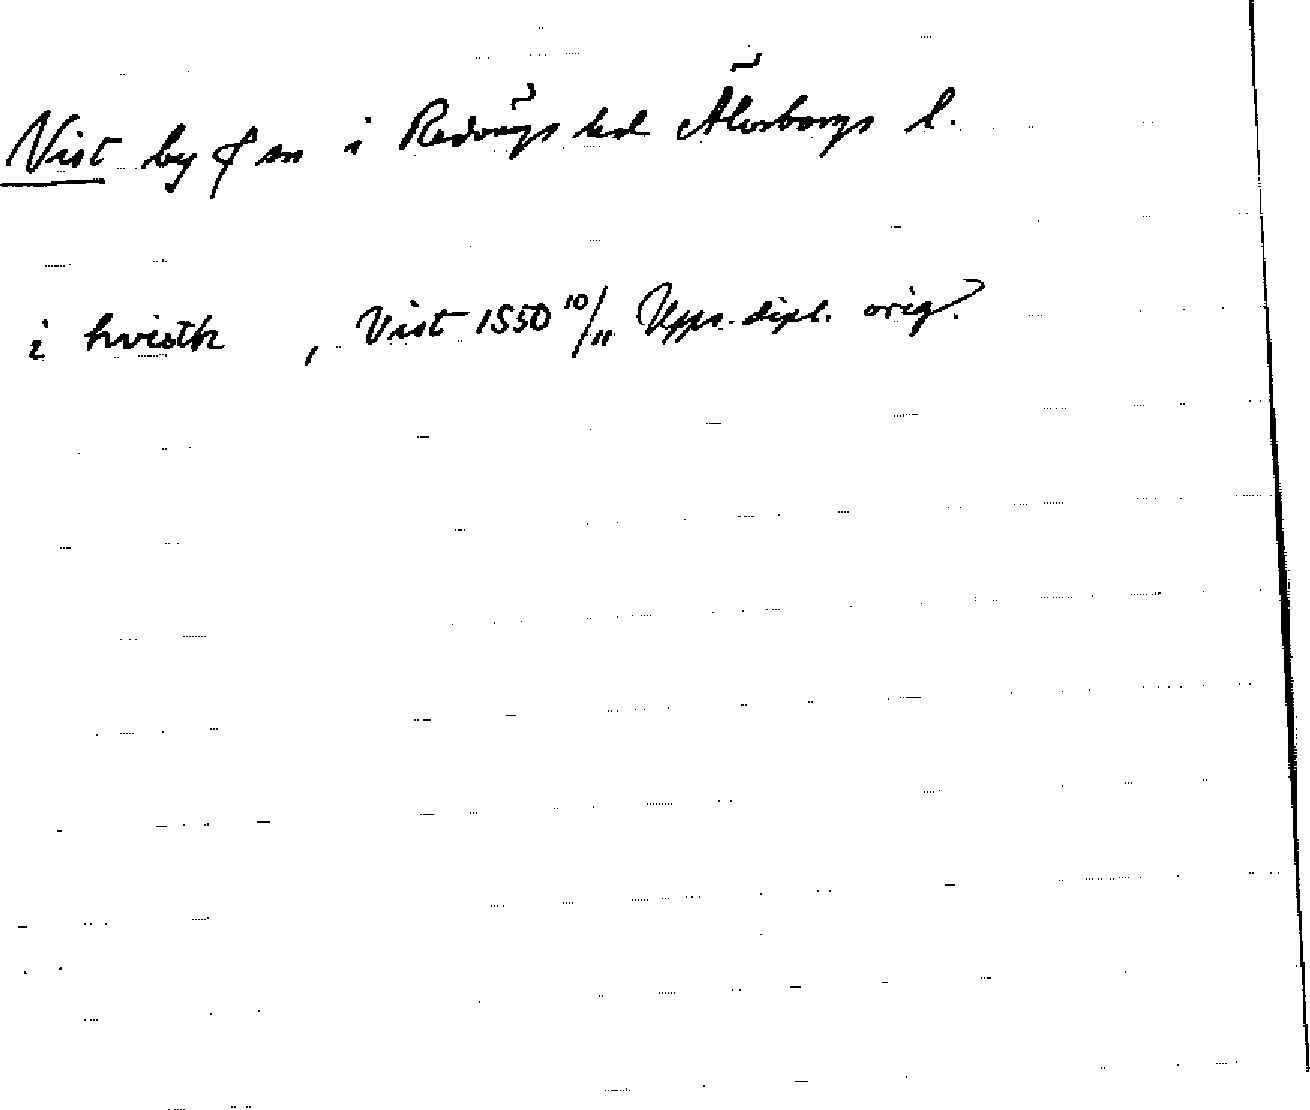 Vist by & sn i Redvägs hd Älvsborgs l.
i hvisth , Vist 1550 10/11 Upps. dipl. orig.